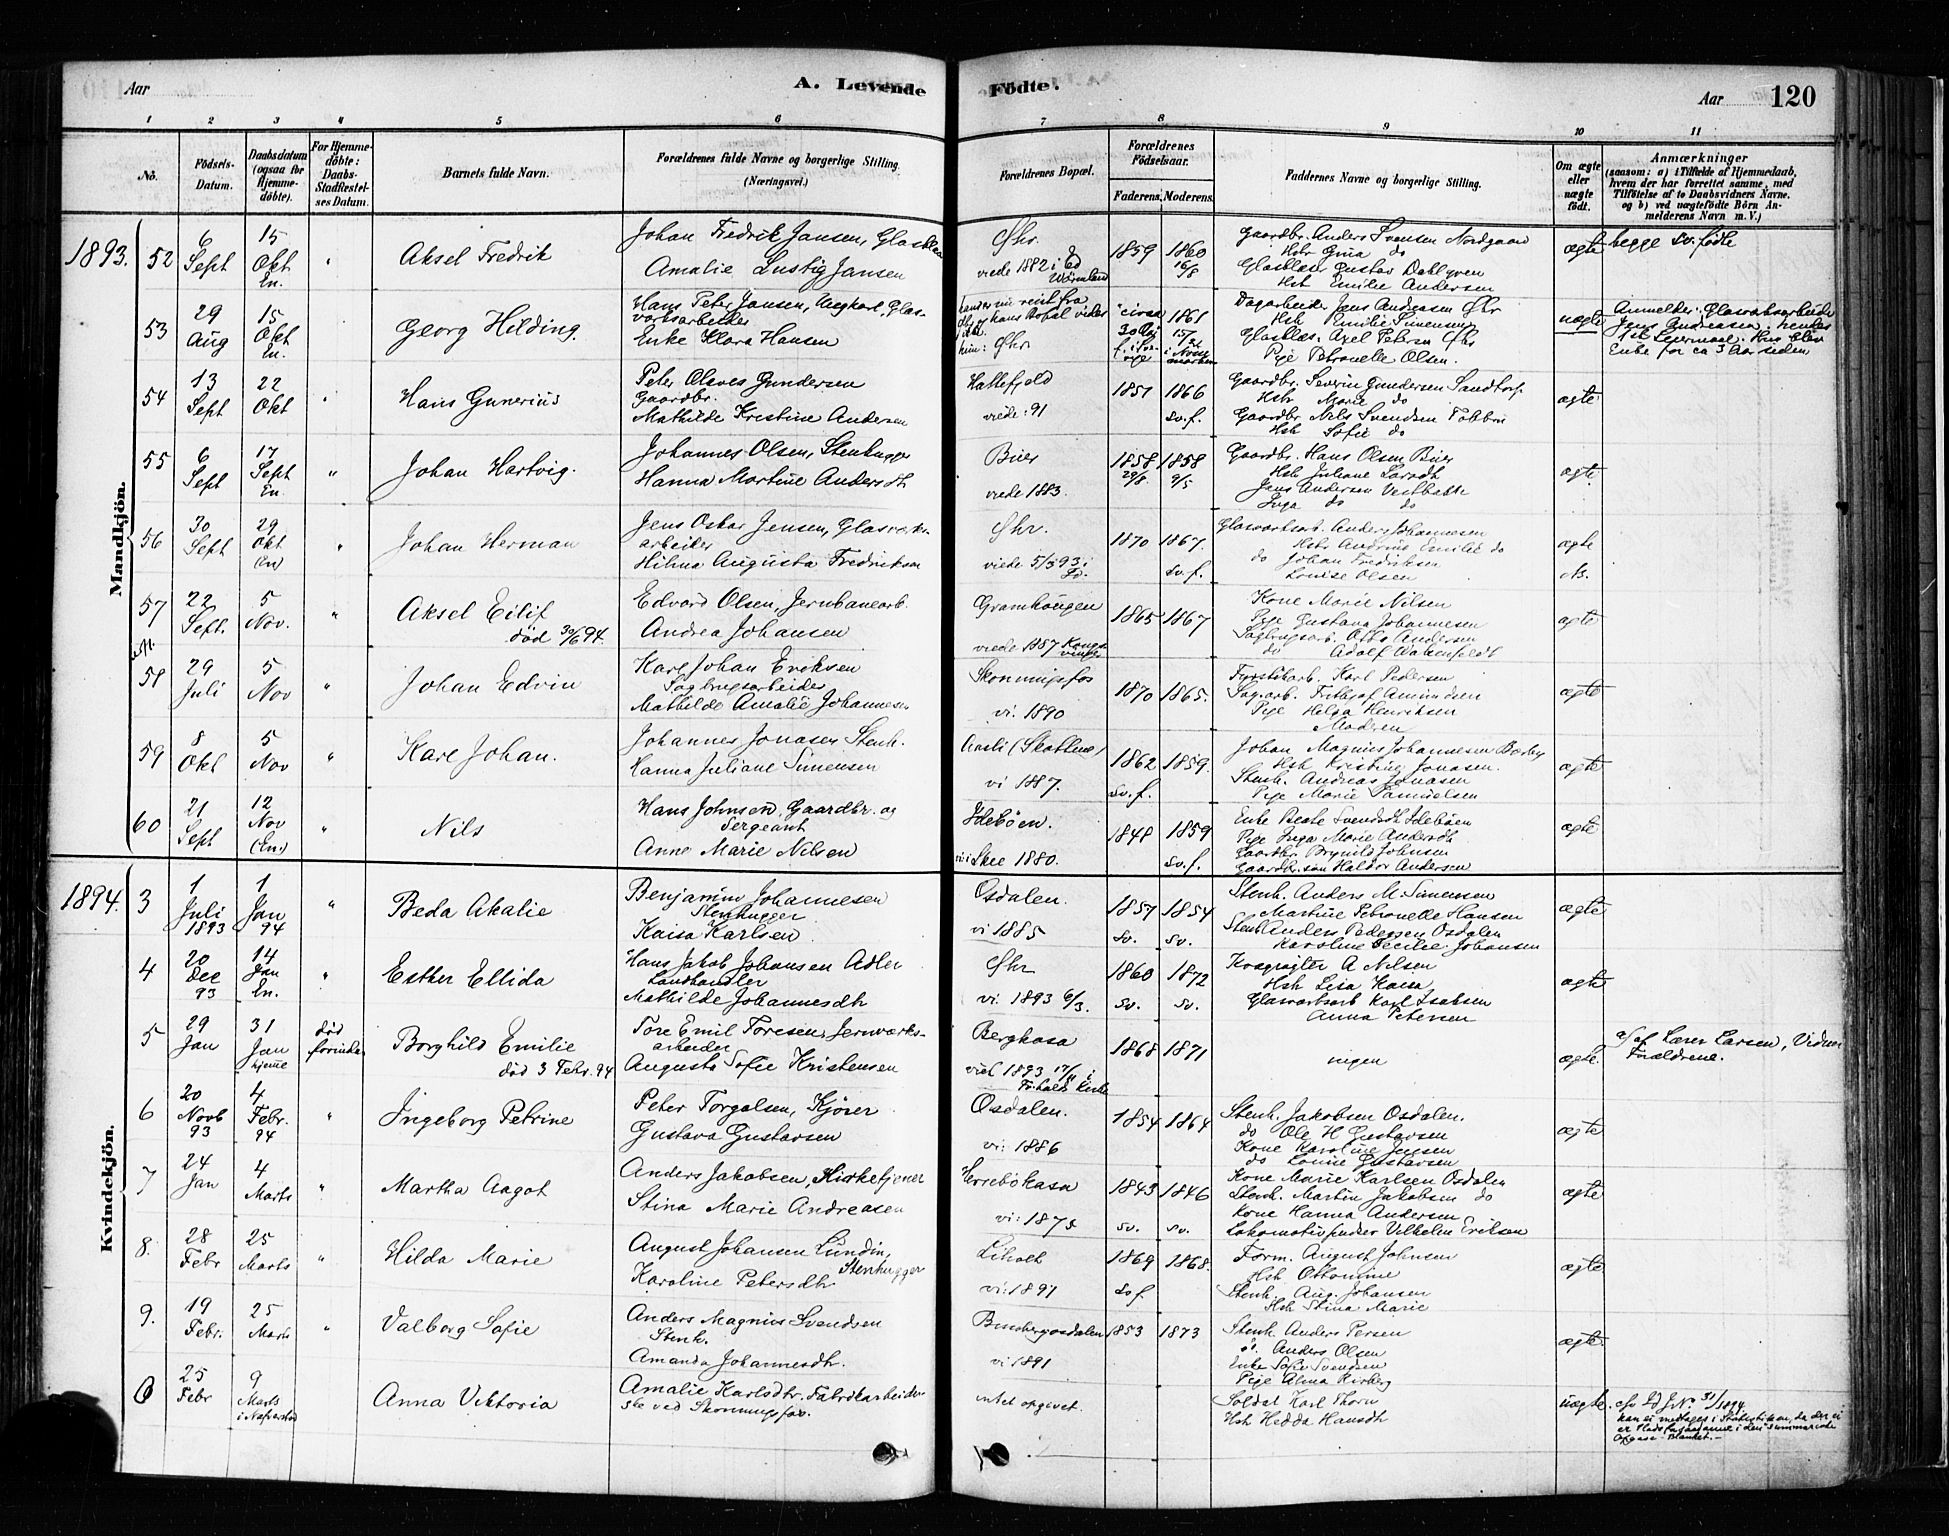 Aar
A. Levende
Födte.
Aar
120
1 2 3 4 5 6 7 8 9 10 11
No.
Födsels-
Datum.
Daabsdatum
(ogsaa for
Hjemme-
döbte).
For Hjemme-
döbte:
Daabs-
Stadfæstel-
ses Datum.
Barnets fulde Navn.
Forældrenes fulde Navne og borgerlige Stilling.
(Næringsvei.)
Forældrenes Bopæl.
Forældrenes
Födselsaar.
Faderens. Moderens.
Faddernes Navne og borgerlige Stilling.
Om ægte
eller
uægte
födt.
Anmærkninger
(saasom: a) i Tilfælde af Hjemmedaab,
hvem der har forrettet samme, med
Tilföielse af to Daabsvidners Navne.
og b) ved uægtefödte Börn An-
melderens Navn m. V.)
Mandkjön.
1893.
52
6
Sept
15
Okt
En.
"
Aksel Fredrik
Johan Fredrik Jansen, Glasblæ
Amalie Lustig Jansen
Øhr.
viede 1882 i Ed
Wërmland
1859
1860
16/8
Gaardbr. Anders Svensen Nordgaard
Hstr Gina do
Glasblæser Gustav Dahlgren
Hst Emilie Andersen
ægte
begge sv. fødte
53
29
Aug
15
Okt
En.
Georg Hilding.
Hans Peter Jansen, Ungkarl, Glas-
værksarbeider
Enke Klara Hansen
Øhr
circa
30 Aar
1861
Dagarbeider Jens Andreasen Øhr
Hstr Emilie Simensen
Glasblæs. Axel Petersen Øhr
Pige Petronelle Olsen.
uægte
Anmelder: Glasværksarbeider
Jens Andreasen
Enke for ca 3 Aar siden
54
13
Sept
22
Okt
"
Hans Gunerius
Peter Olaves Gundersen
Gaardbr.
Mathilde Kristine Andersen
Hattefjeld
viede: 91
1857
1866
sv.f.
Gaardbr. Severin Gundersen Sandtorp
Hstr Marie do
Gaardbr. Nils Svendsen
Hst Sofie do
ægte
55
6
Sept
17
Sept
En.
"
Johan Hartvig.
Johannes Olsen, Stenhugger
Hanna Martine Andersdt
Buer
viede 1883.
1858
29/8
1858
9/5
Gaardbr. Hans Olsen Buer
Hstr Juliane Larsdt
Jens Andersen Vestbakke
Inga do do
ægte
56
30
Sept
29
Okt
(En)
"
Johan Herman
Jens Oskar Jensen, Glasværks-
arbeider
Hilma Augusta Fredriksen
Øhr.
viede 5/3 93 i
1870
1867.
sv.f.
Glasværksarb. Anders Johannesen
Hstr Andrine Emilie do
do Johan Fredriksen
Louise Olsen
ægte
57
22
Sept.
5
Nov.
"
Aksel Eilif
død 30/6 94.
Edvard Olsen, Jernbanearb.
Andrea Johansen
Gramhaugen
viede 1887 Kongs-
vinger
1865
1867
Kone Marie Nilsen
Pige Gustava Johannesen
Sagbrugsarb. Otto Andersen
do Adolf Wakenfeldt
ægte
58
29
Juli
5
Nov
"
Johan Edvin
Karl Johan Eriksen
Sagbrugsarbeider
Mathilde Amalie Johannesen
Skonningsfos
vi. 1890
1870
1865.
Fyrstikarb. Karl Pedersen
Sag.arb. Fritjof Amundsen
Pige Helga Henriksen
Moderen
ægte
59
8
Okt
5
Nov
"
Karl Johan.
Johannes Jonasen Stenh.
Hanna Juliane Simensen
vi 1887.
1862
sv.f.
1859.
Johan Magnus Johannesen Berby
Hstr Kristine Jonasen.
Stenh. Andreas Jonasen
Pige Marie Samuelsen
ægte
60
21
Sept
12
Nov
(En.)
"
Nils
Hans Johnsen, Gaardbr. og
Sergeant
Anne Marie Nilsen
Idebøen.
vi: i Skee 1880.
1848
1859
sv.f.
Enke Beate Svendsdt Idebøen
Pige Inga Marie Andersdt
Gaardbr. Brynild Johnsen
Gaardbr. søn Haldor Andersen
ægte
Kvindekjön.
1894.
3
1
Juli
1893
1
Jan
94
"
Beda Akalie
Benjamin Johannesen
Stenhugger
Kaisa Karlsen
Osdalen.
vi 1885
1857
sv.
1854
sv.
Stenh. Anders M. Simensen
Martine Petronelle Hansen
Stenh Anders Pedersen Osdalen
Karoline Cecilie Johansen
ægte
4
20
Dec
93
14
Jan
En.
"
Esther Ellida
Hans Jakob Johansen Adler
Landhandler
Mathilde Johannesdtr
Øhr
vi: 1893 6/3.
1860
sv.
1872
sv.
Kvægrøgter A Nilsen
Hstr Lisa Kaisa
Glasværksarb Karl Isaksen
Anna Petersen
ægte
5
29
Jan
31
Jan
hjeme
død
forinden
Borghild Emilie
død 3 Febr. 94
Tore Emil Toresen, Jernværks-
arbeider
Augusta Sofie Kristensen
Bergkasa
viet 1893 17/11 i
Fr.halds Kirke
1868
1871
ingen
ægte.
a/ af Lærer Larsen, Vidner
Forældrene.
6
20
Novb
93
4
Febr.
94
"
Ingeborg Petrine
Peter Torgalsen, Kjører
Gustava Gustavsen
Osdalen.
vi: 1886
1854
1864
Stenh. Jakobsen Osdalen.
do Ole H Gustavsen
Kone Karoline Jensen
do Louise Gustavsen
ægte
7
24
Jan
4
Marts
"
Martha Aagot
Anders Jakobsen, Kirketjener
Stina Marie Andreasen
Herrebökasa
vi: 1875
1843
sv.
1846
sv.
Kone Marie Karlsen Osdalen
Stenh. Martin Jakobsen do
Kone Hanna Andersen
Lokomotivpudser Vilhelm Eriksen
ægte
8.
28
Febr
25
Marts
"
Hilda Marie
August Johansen Lundin,
Stenhugger
Karoline Petersdtr
Liholt
vi: 1891
1869
sv f
1868.
Form. August Johnsen
Hst Ottomine
Stenh. Aug. Johansen
Hst Stina Marie
ægte
9.
19
Febr.
25
Marts
"
Valborg Sofie
Anders Magnus Svendsen
Stenh.
Amanda Johannesdtr.
vi 1891
1853
1873
Stenh Anders Persen
Anders Olsen
Enke Sofie Svendsen
Pige Alma Kirberg
ægte
25
Febr
9
Marts
i Næsvestad
Anna Viktoria
Amalie Karlsdtr. Fabrikarbeider-
ske ved Skonningsfos.
intet opgivet.
Soldat Karl Thorn
Hst Hedda Hansdt
uægte
cfr Ed J No 31/1894.
kan ei medtages i Statistiken, da der ei
er Plads for saadanne i den summariske
Opgave-Blanket.-